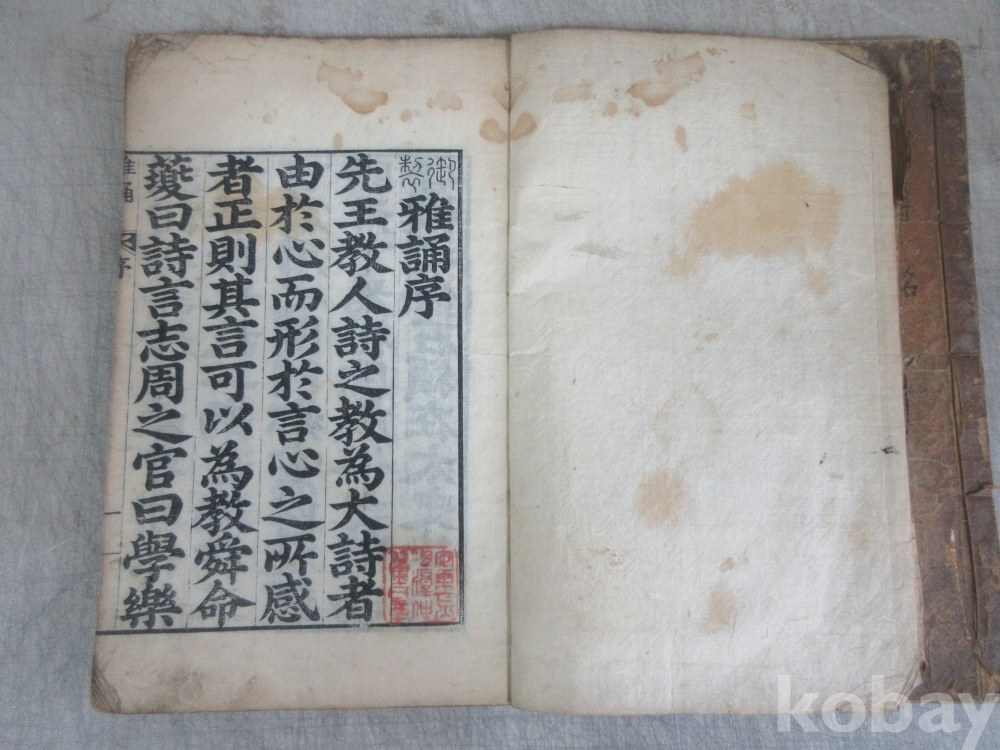 御製雅誦序
先王教人詩之教為大詩者
由於心而形於言心之所感
者正則其言可以為教舜命
夔曰詩言志周之官曰學樂
雅誦 序
kobay